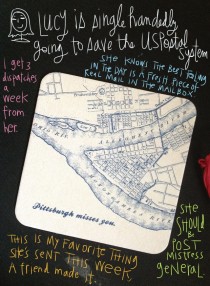 LUCY is single handedly
going to save the US Postal system
SHE KNOWS THE BEST THING
IN THE DAY IS A FRESH PIECE OF
REAL MAIL IN THE MAILBOX.
I get 3
dispatches
a
week
from
her.
Pittsburgh misses you.
SHE
SHOULD
Be
POST
MISTRESS
general.
THIS IS MY FAVORITE THING
SHE'S SENT THIS WEEK
A friend made it.